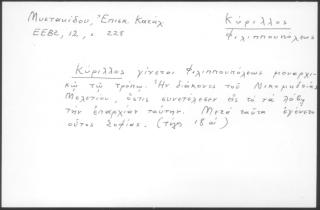 Μυστακίδου, Ἐπισκ. Κατάλ
ΕΕΒΣ, 12, σ. 228
Κύριλλος
Φιλιππουπόλεως
Κύριλλος γίνεται Φιλιππουπόλεως μοναρχι-
κῷ τῷ τρόπῳ. Ἦν διάκονος τοῦ Νικομηδείας
Μελετίου, ὅστις συνετέλεσεν εἰς τὸ νὰ λάβῃ
τὴν ἐπαρχίαν ταύτην. Μετὰ ταῦτα ἐγένετο
οὗτος Σοφίας. (τέλη 18 αἰ)